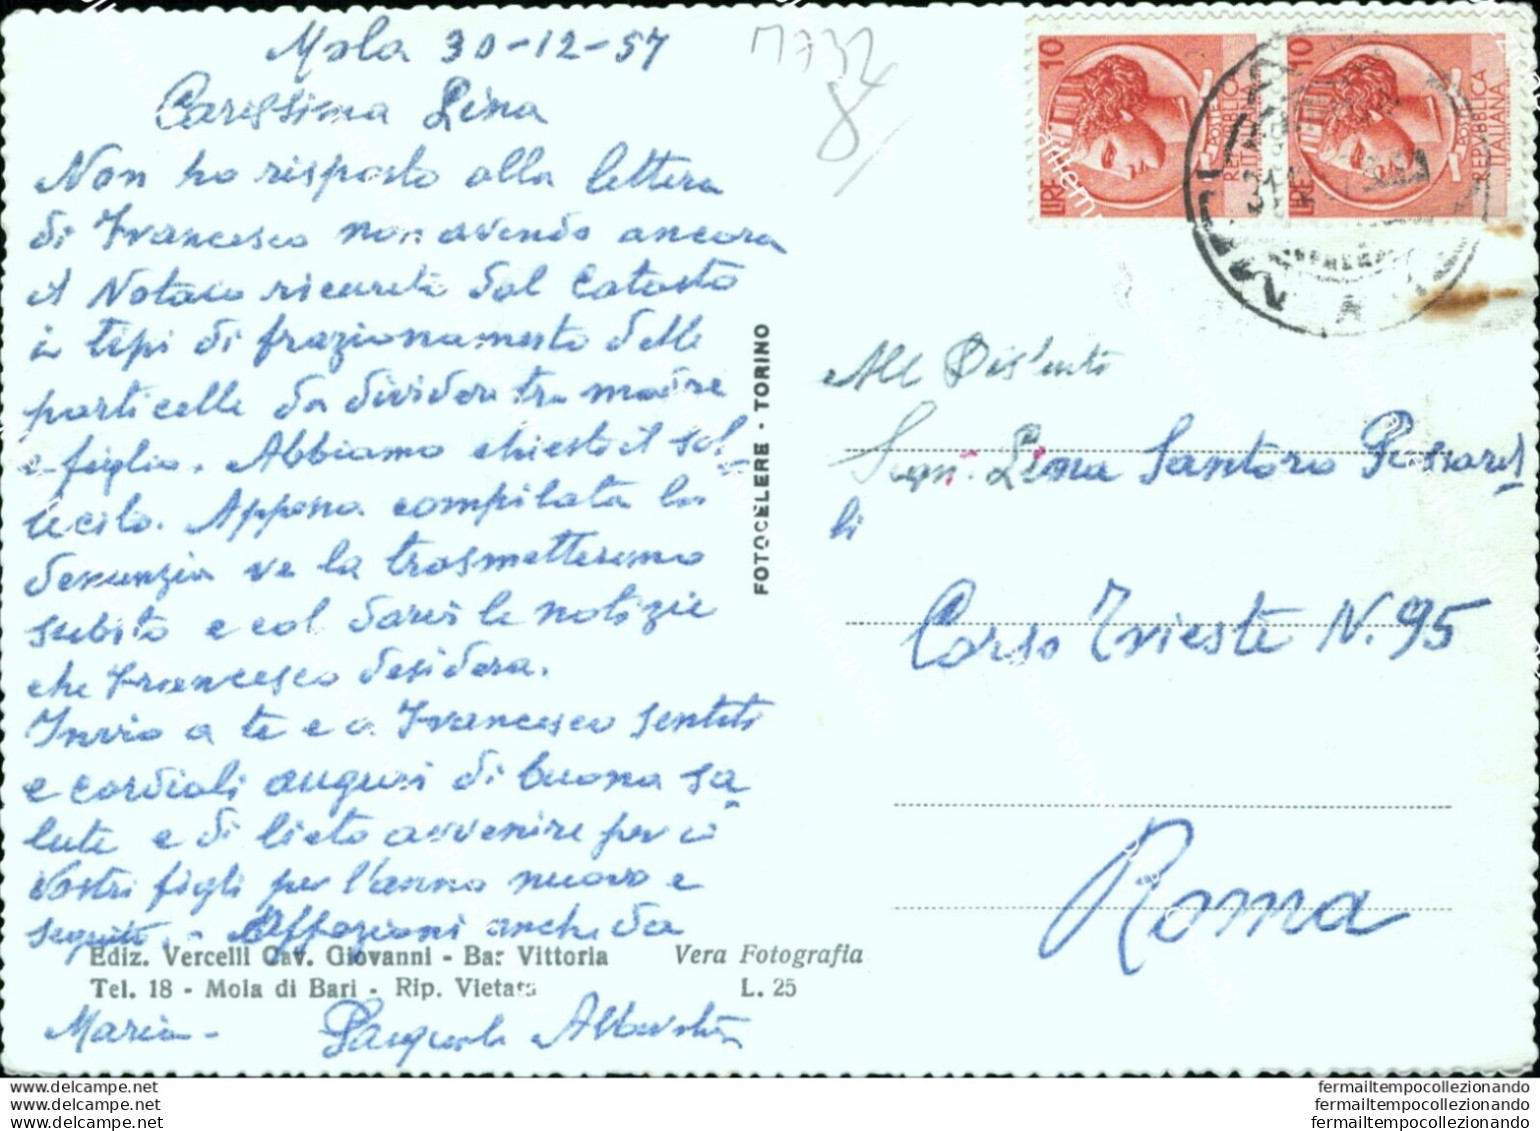 Mola 30-12-57
Carissima Lina
Non ho risposto alla lettera
di Francesco non avendo ancora
il Notaio ricevuto dal Catasto
i tipi di frazionamento delle
particelle da dividere tra madre
e figlio. Abbiamo chiesto il sol-
lecito. Appena compilata la
denunzia ve la trasmetteremo
subito e col darvi le notizie
che Francesco desidera.
Invio a te e a Francesco sentiti
e cordiali auguri di buona sa-
lute e di lieto avvenire per i
Vostri figli per l'anno nuovo e
seguito. - Affezioni anche da
Maria - Pasquale
Ediz. Vercelli Cav. Giovanni - Bar Vittoria
Tel. 18 - Mola di Bari - Rip. Vietata
Vera Fotografia
L. 25
FOTOCELERE - TORINO
M732
8
LIRE 10
POSTE
REPVBBLICA
ITALIANA
LIRE 10
POSTE
REPVBBLICA
ITALIANA
All
Sign. Lina Santoro
li
Corso Trieste N. 95
Roma
www.delcampe.net
www.delcampe.net
www.delcampe.net
fermailtempocollezionando
fermailtempocollezionando
fermailtempocollezionando